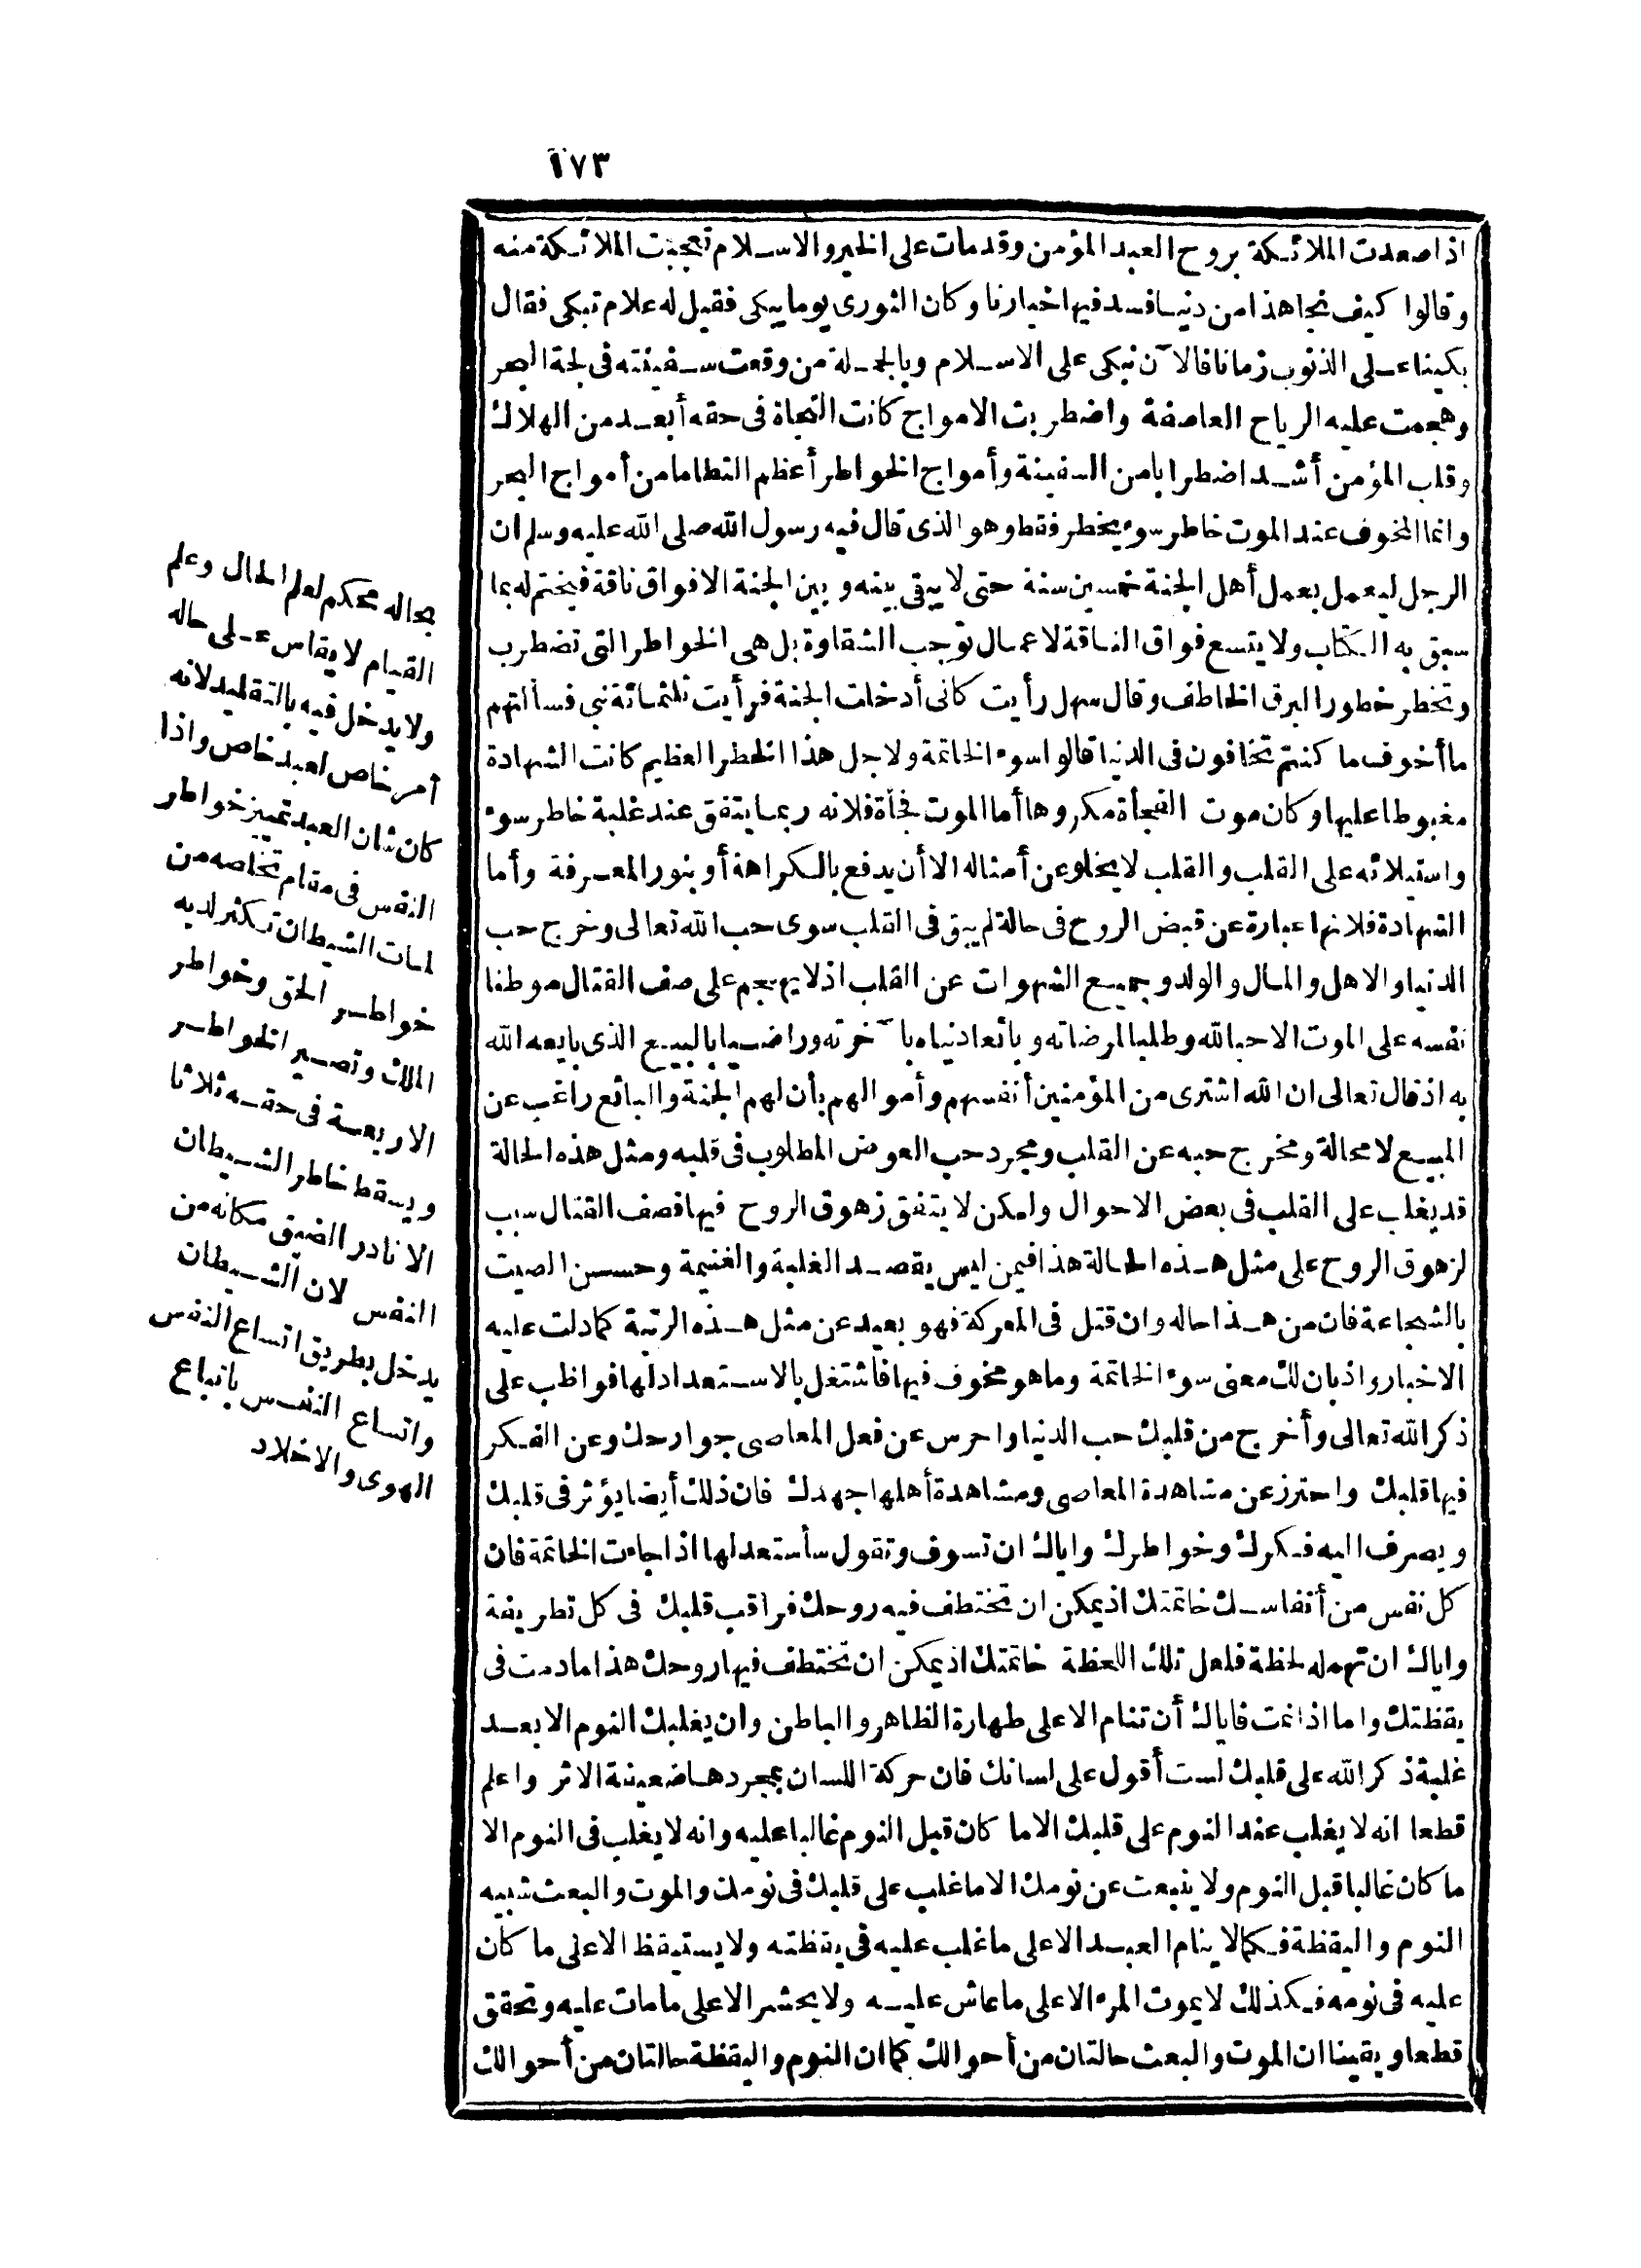 ١٧٣
اذا صعدت الملائكة بروح العبد المؤمن وقد مات على الخير والاسلام تعجبت الملائكة منه
وقالوا كيف نجا هذا من دنيا فسد فيها خيارنا وكان الثورى يوما يبكى فقيل له علام تبكى فقال
بكينا على الذنوب زمانا فالآن نبكى على الاسلام وبالجملة من وقعت سفينته فى لجة البحر
وهجمت عليه الرياح العاصفة واضطربت الامواج كانت النجاة فى حقه أبعد من الهلاك
وقلب المؤمن أشد اضطرابا من السفينة وأمواج الخواطر أعظم التطاما من أمواج البحر
وانما المخوف عند الموت خاطر سوء يخطر فقط وهو الذى قال فيه رسول الله صلى الله عليه وسلم ان
الرجل ليعمل بعمل أهل الجنة خمسين سنة حتى لا يبقى بينه وبين الجنة الا فواق ناقة فيختم له بما
سبق به الكتاب ولا يتسع فواق الناقة لاعمال توجب الشقاوة بل هى الخواطر التى تضطرب
وتخطر خطور البرق الخاطف وقال سهل رأيت كأنى أدخلت الجنة فرأيت ثلثمائة نبى فسألتهم
ما أخوف ما كنتم تخافون فى الدنيا قالوا سوء الخاتمة ولاجل هذا الخطر العظيم كانت الشهادة
مغبوطا عليها وكان موت الفجأة مكروها أما الموت فجأة فلانه ربما يتفق عند غلبة خاطر سوء
واستيلائه على القلب والقلب لا يخلو عن أمثاله الا أن يدفع بالكراهة أو بنور المعرفة وأما
الشهادة فلانها عبارة عن قبض الروح فى حالة لم يبق فى القلب سوى حب الله تعالى وخرج حب
الدنيا والاهل والمال والولد وجميع الشهوات عن القلب اذ لا يهجم على صف القتال موطنا
نفسه على الموت الا حبا لله وطلبا لمرضاته وبائعا دنياه بآخرته وراضيا بالبيع الذى بايعه الله
به اذ قال تعالى ان الله اشترى من المؤمنين أنفسهم وأموالهم بأن لهم الجنة والبائع راغب عن
المبيع لا محالة ومخرج حبه عن القلب ومجرد حب العوض المطلوب فى قلبه ومثل هذه الحالة
قد يغلب على القلب فى بعض الاحوال ولكن لا يتفق زهوق الروح فيها فصف القتال سبب
لزهوق الروح على مثل هذه الحالة هذا فيمن ليس يقصد الغلبة والغنيمة وحسن الصيت
بالشجاعة فان من هذا حاله وان قتل فى المعركة فهو بعيد عن مثل هذه الرتبة كما دلت عليه
الاخبار واذ بان لك معنى سوء الخاتمة وما هو مخوف فيها فاشتغل بالاستعداد لها فواظب على
ذكر الله تعالى وأخرج من قلبك حب الدنيا واحرس عن فعل المعاصى جوارحك وعن الفكر
فيها قلبك واحترز عن مشاهدة المعاصى ومشاهدة أهلها جهدك فان ذلك أيضا يؤثر فى قلبك
ويصرف اليه فكرك وخواطرك واياك ان تسوف وتقول سأستعد لها اذا جاءت الخاتمة فان
كل نفس من أنفاسك خاتمتك اذ يمكن ان تختطف فيه روحك فراقب قلبك فى كل تطريفة
واياك ان تهمله لحظة فلعل تلك اللحظة خاتمتك اذ يمكن ان تختطف فيها روحك هذا ما دمت فى
يقظتك واما اذا نمت فاياك أن تنام الا على طهارة الظاهر والباطن وان يغلبك النوم الا بعد
غلبة ذكر الله على قلبك لست أقول على لسانك فان حركة اللسان بمجردها ضعيفة الاثر واعلم
قطعا انه لا يغلب عند النوم على قلبك الا ما كان قبل النوم غالبا عليه وانه لا يغلب فى النوم الا
ما كان غالبا قبل النوم ولا ينبعث عن نومك الا ما غلب على قلبك فى نومك والموت والبعث شبيه
النوم واليقظة فكما لا ينام العبد الا على ما غلب عليه فى يقظته ولا يستيقظ الا على ما كان
عليه فى نومه فكذلك لا يموت المرء الا على ما عاش عليه ولا يحشر الا على ما مات عليه وتحقق
قطعا ويقينا ان الموت والبعث حالتان من أحوالك كما ان النوم واليقظة حالتان من أحوالك
بحاله محكم لعلم الحال وعلم
القيام لا يقاس على حاله
ولا يدخل فيه بالتقليد لانه
أمر خاص لعبد خاص واذا
كان شان العبد تمييز خواطر
النفس فى مقام تخلصه من
لمات الشيطان تكثر لديه
خواطر الحق وخواطر
الملك وتصير الخواطر
الاربعة فى حقه ثلاثا
ويسقط خاطر الشيطان
الا نادرا لضيق مكانه من
النفس لان الشيطان
يدخل بطريق اتساع النفس
واتساع النفس باتباع
الهوى والاخلاد